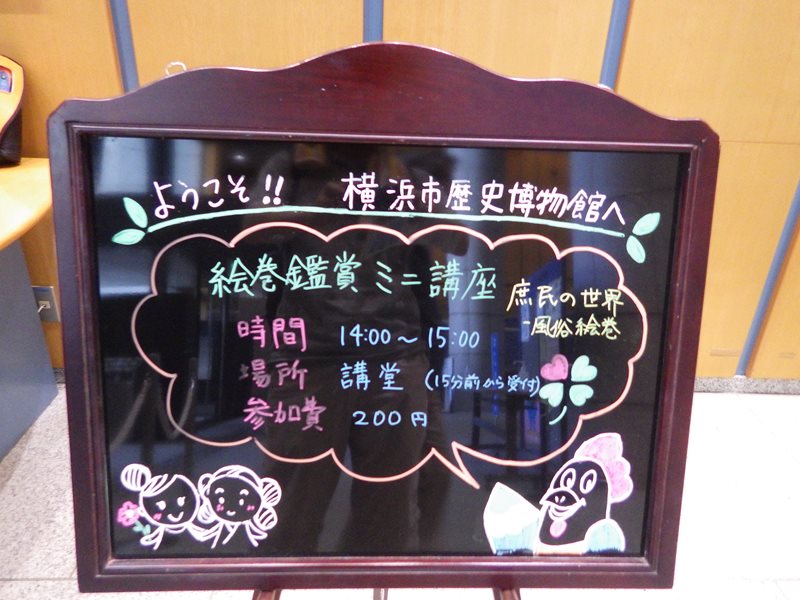 ようこそ!! 横浜市歴史博物館へ
絵巻鑑賞ミニ講座
庶民の世界
-風俗絵巻
時間 14:00～15:00
場所 講堂 (15分前から受付)
参加費 200円